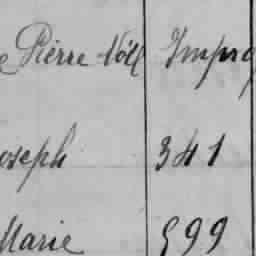 Pierre Noël Impra
oseph 341
Marie 599